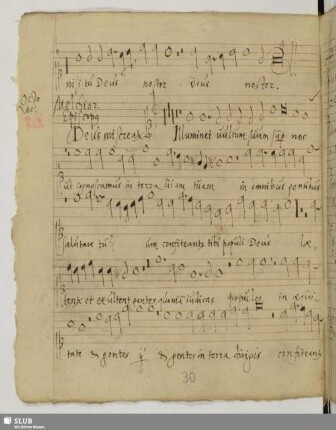 nisi tu Deus noster Deus noster.
Octo
voc:
Melchior
Episcop9
Deus misereat Illuminet vultum suum sup nos
ut cognoscamus in terra viam tuam in omnibus gentibus
salutare tu um confiteantr tibi populi Deus læ
tentr et exultent gentes qm iudicas populos in æqui
tate & gentes & gentes in terra dirigis confiteantr
30
SLUB
Wir führen Wissen.